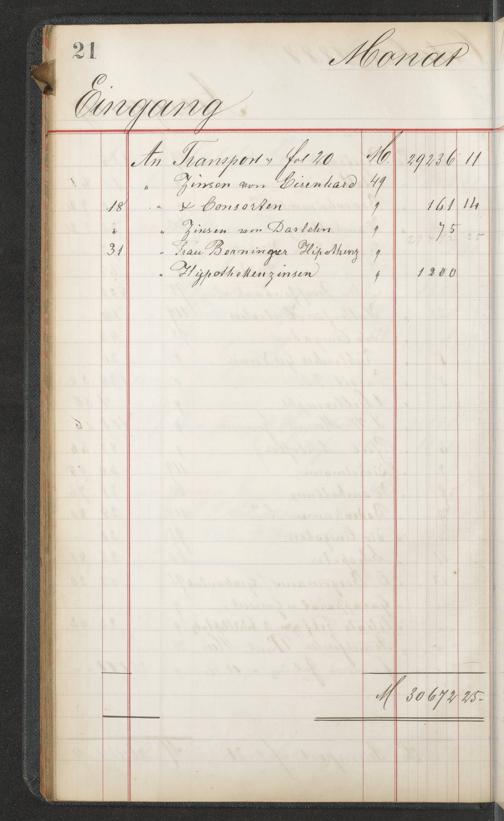 21
Monat
Eingang
An Transport v fol 20 M. 29236 11
" Zinsen von Eisenhard 49
18 " & Consorten " 161 14
" " Zinsen von Darlehn " 75
31 " Frau Berninger Hipothenz "
" Hypothekenzinsen " 1200
M 30672 25-